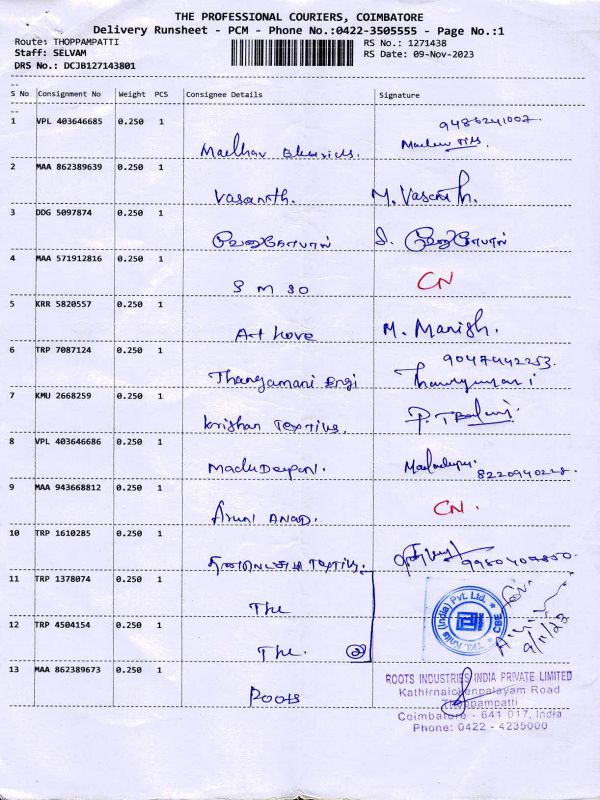 THE PROFESSIONAL COURIERS, COIMBATORE
Delivery Runsheet - PCM - Phone No.:0422-3505555 - Page No.:1
Route: THOPPAMPATTI
RS No.: 1271438
Staff: SELVAM
RS Date: 09-Nov-2023
DRS No.: DCJB127143801
S No Consignment No Weight PCS Consignee Details Signature
1 VPL 403646685 0.250 1 9486241007
Madhav
2 MAA 862389639 0.250 1
Vasanth. M. Vasanth.
3 DDG 5097874 0.250 1
வேணுகோபால் வேணுகோபால்
4 MAA 571912816 0.250 1
S M SO CN
5 KRR 5820557 0.250 1
Art Love M. Manish.
6 TRP 7087124 0.250 1 9047442253
Thangamani Engi Thangamani
7 KMU 2668259 0.250 1
Krishan Textiles.
8 VPL 403646686 0.250 1
8220940228
9 MAA 943668812 0.250 1
Aruni ANAD. CN.
10 TRP 1610285 0.250 1
Textiles.
11 TRP 1378074 0.250 1
The
12 TRP 4504154 0.250 1
The. 2
TKT. Knits (India) Pvt. Ltd. * CBE *
13 MAA 862389673 0.250 1
Roots
ROOTS INDUSTRIES INDIA PRIVATE LIMITED
Kathirnaickenpalayam Road
Thoppampatti
Coimbatore - 641 017, India
Phone: 0422 - 4235000